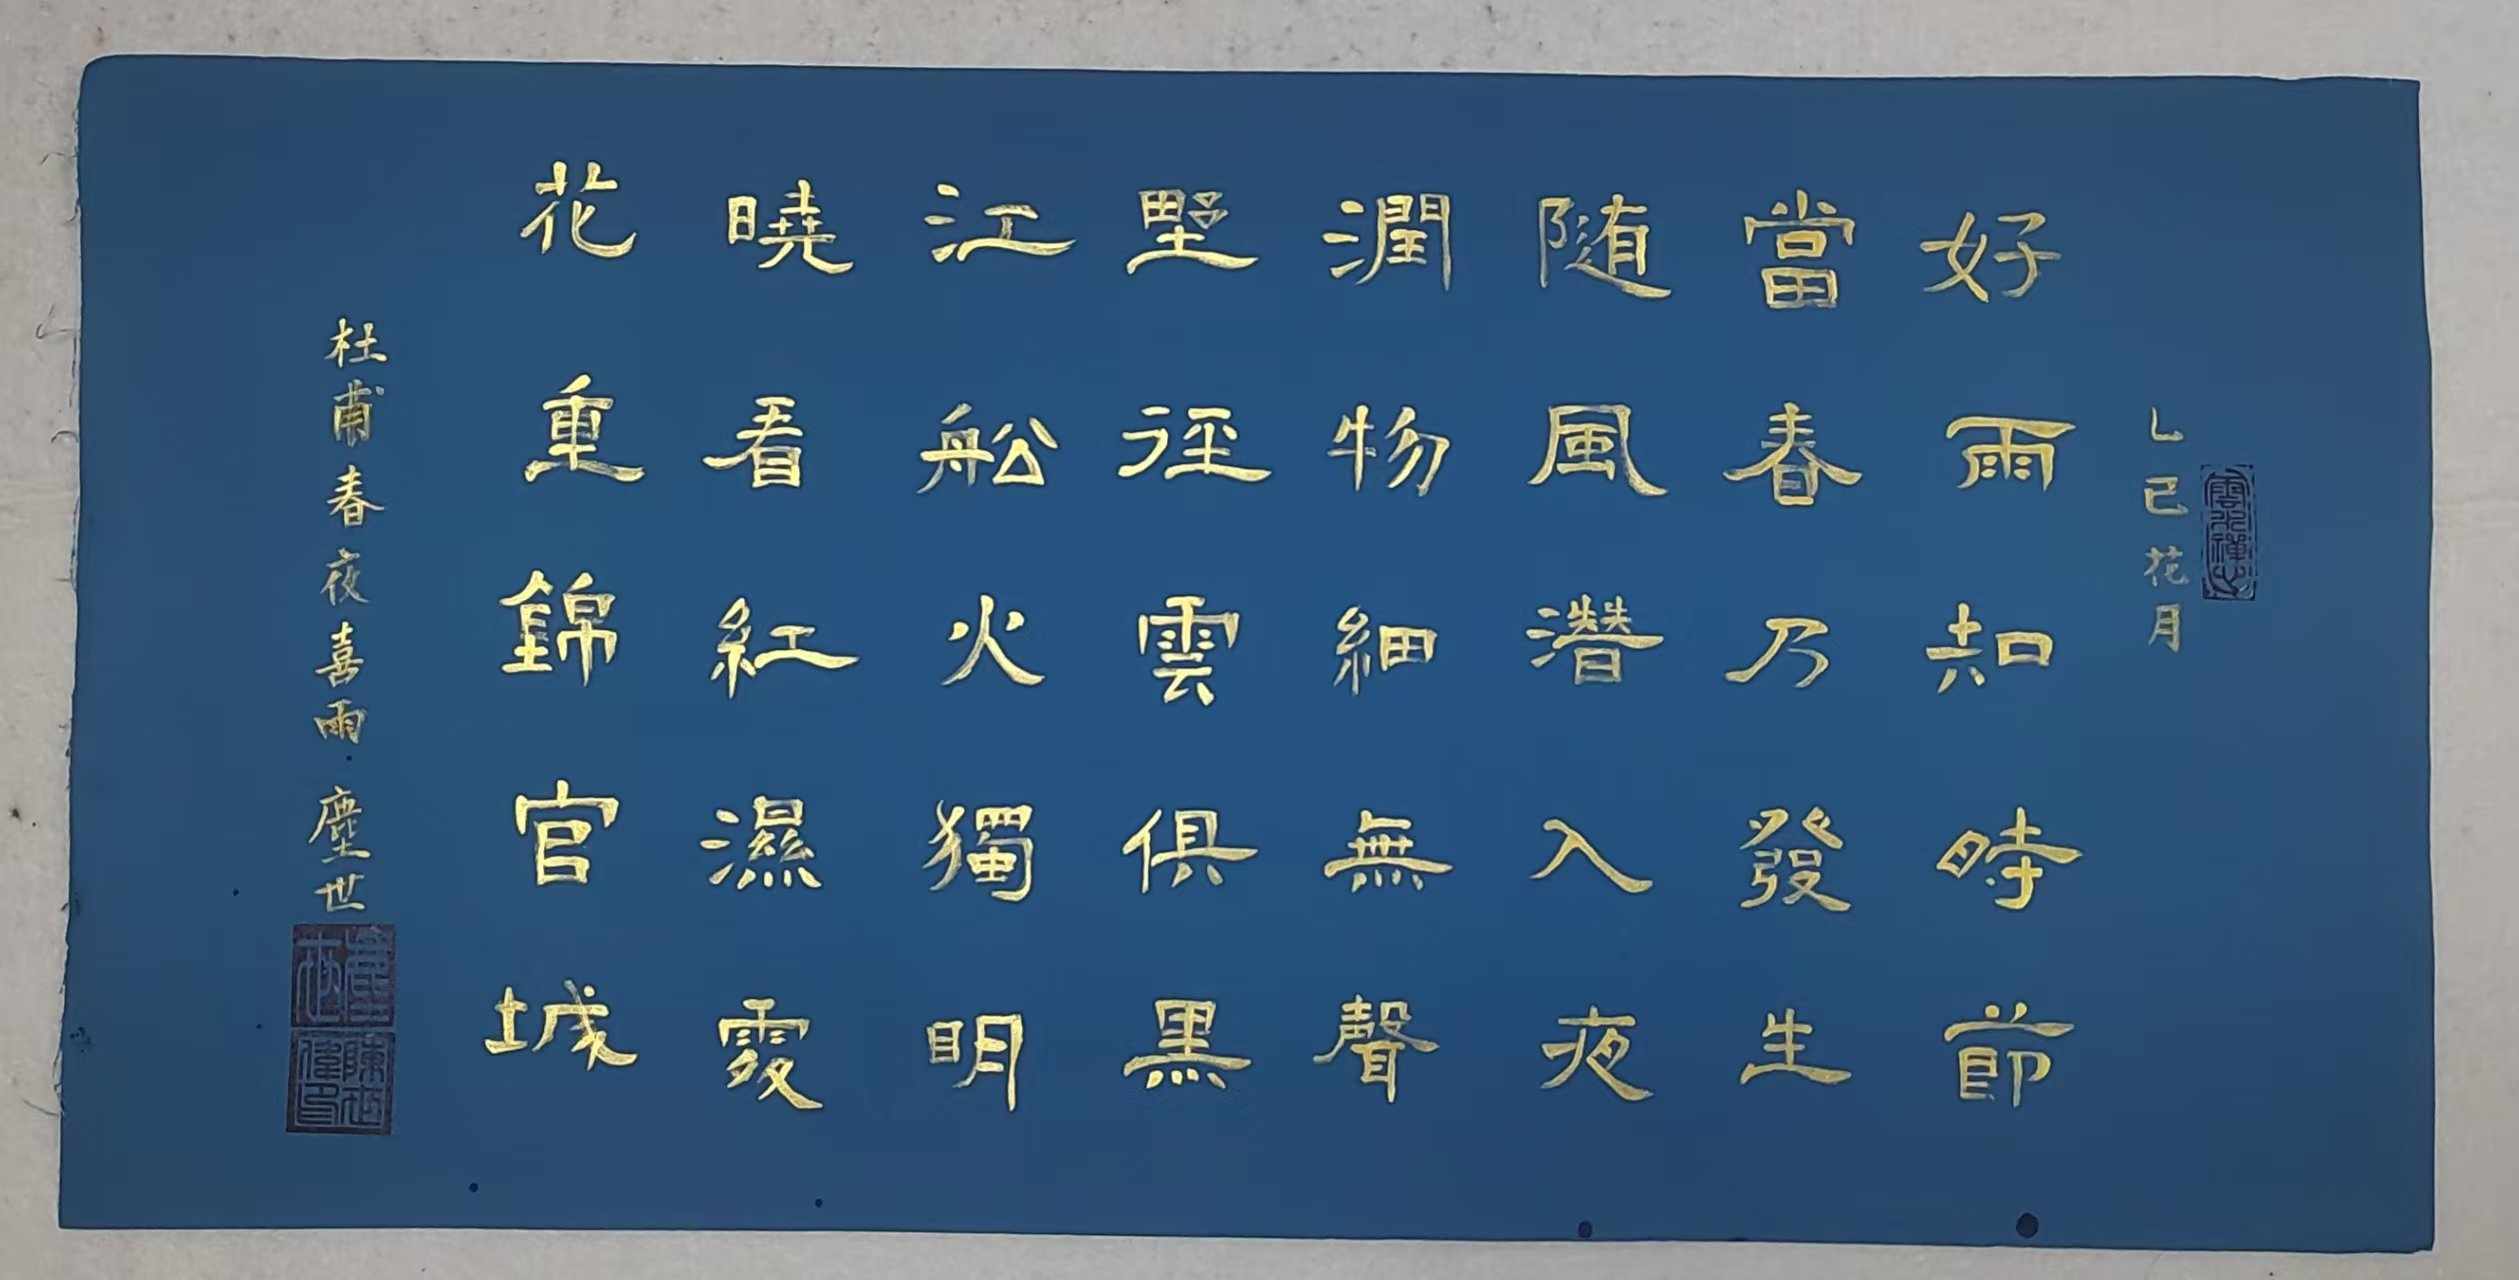 雲水禪心
乙巳花月
好雨知時節
當春乃發生
随風潛入夜
潤物細無聲
野徑雲俱黑
江舩火獨明
曉看紅濕處
花重錦官城
杜甫春夜喜雨 塵世